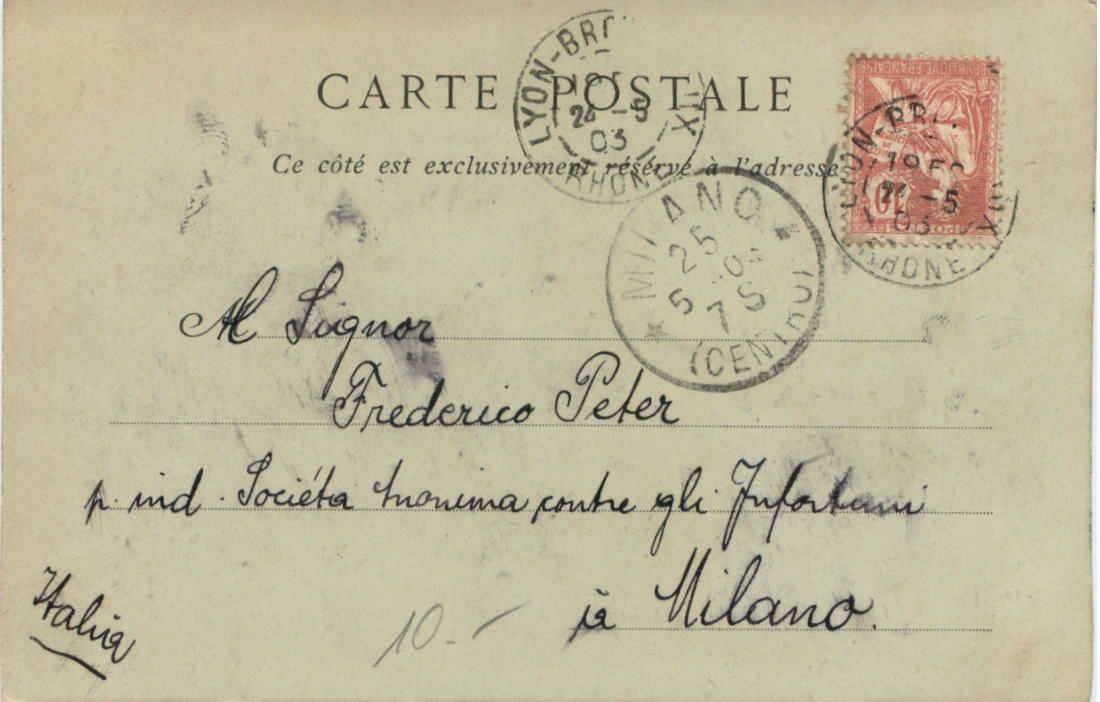 CARTE POSTALE
Ce côté est exclusivement réservé à l'adresse
LYON-BRO
24 -5
03
RHONE
REPUBLIQUE FRANÇAISE
10
POSTES
LYON-BRO
24 -5
03
RHONE
MILANO
25
5 03
7 S
(CENTRO)
Al Signor
Frederico Peter
p. ind. Sociéta Anonima contre gli Infortuni
à Milano.
Italia
10.-